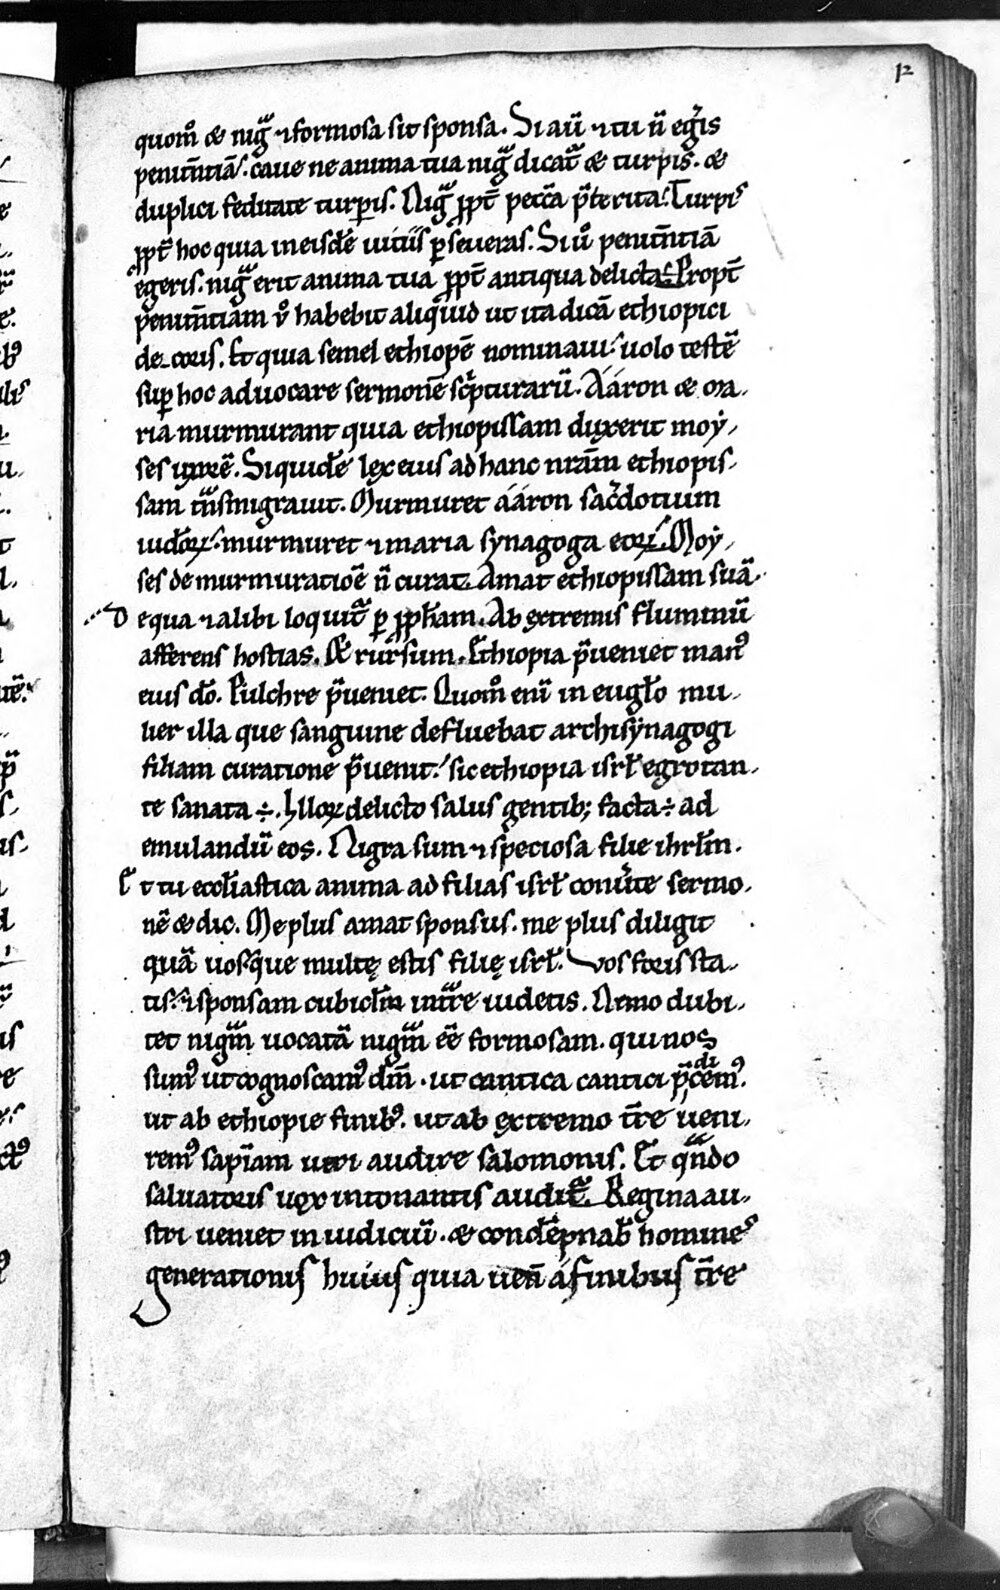 12
quom̊ & nigͣ ⁊ formosa sit sponsa. Si aū ⁊ tu n̄ egͥis
penitn̄tiā. caue ne anima tua nigͣ dicatᷓ & turpis. &
duplici feditate turpis. Nigͣ ꝓpt̄ peccͣa p̄terita. Turpis
ꝓpt̄ hoc quia in eisdē uitiis ꝑseueras. Si ů penitn̄tiā
egeris. nigͣ erit anima tua ꝓpt̄ antiqua delicta. Propt̄
penitn̄tiam ů habebit aliquid ut ita dicā ethiopici
decoris. Et quia semel ethiopē nominaui. uolo testē
suꝑ hoc aduocare sermonē scͥpturarū. Ááron & ma-
ria murmurant quia ethiopissam duxerit moẏ-
ses uxorē. Siquidē lex eius ad hanc nrām ethiopis-
sam tͣnsmigrauit. Murmuret ááron sacͥdotium
iudeoꝝ. murmuret ⁊ maria synagoga eoꝝ. Moẏ-
ses de murmuratiōe n̄ curat. Amat ethiopissam suā.
D equa ⁊ alibi loquitᷓ ꝑ ꝓph̄am. Ab extremis fluminū
afferens hostias. & rursum. Ethiopia p̄ueniet manꝰ
eius dō. Pulchre p̄ueniet. Quom̊ enī in euglo mu-
lier illa que sanguine defluebat archisynagogi
filiam curatione p̄uenit. sic ethiopia isrł egrotan-
te sanata ÷. Illoꝝ delicto salus gentib; facta ÷ ad
emulandū eos. Nigra sum ⁊ speciosa filie ihrłm.
E t tu eccłiastica anima ad filias isrł conůte sermo-
nē & dic. Me plus amat sponsus. me plus diligit
quā uos. que multę estis filię isrł. Vos foris sta-
tis. ⁊ sponsam cubicłm intͣre uidetis. Nemo dubi-
tet nigͣm uocatā nigͣm eē formosam. qui nos
sumꝰ ut cognoscamꝰ dm̄. ut cantica cantici p̄dicemꝰ.
ut ab ethiopie finibꝰ. ut ab extremo tr̄e ueni-
remꝰ sapīam ueri audire salomonis. Et qͣndo
saluatoris uox intonantis auditᷓ. Regina au-
stri ueniet in iudiciū. & condēpnab̄ homines
generationis huius quia uen̄ á finibus tr̄e